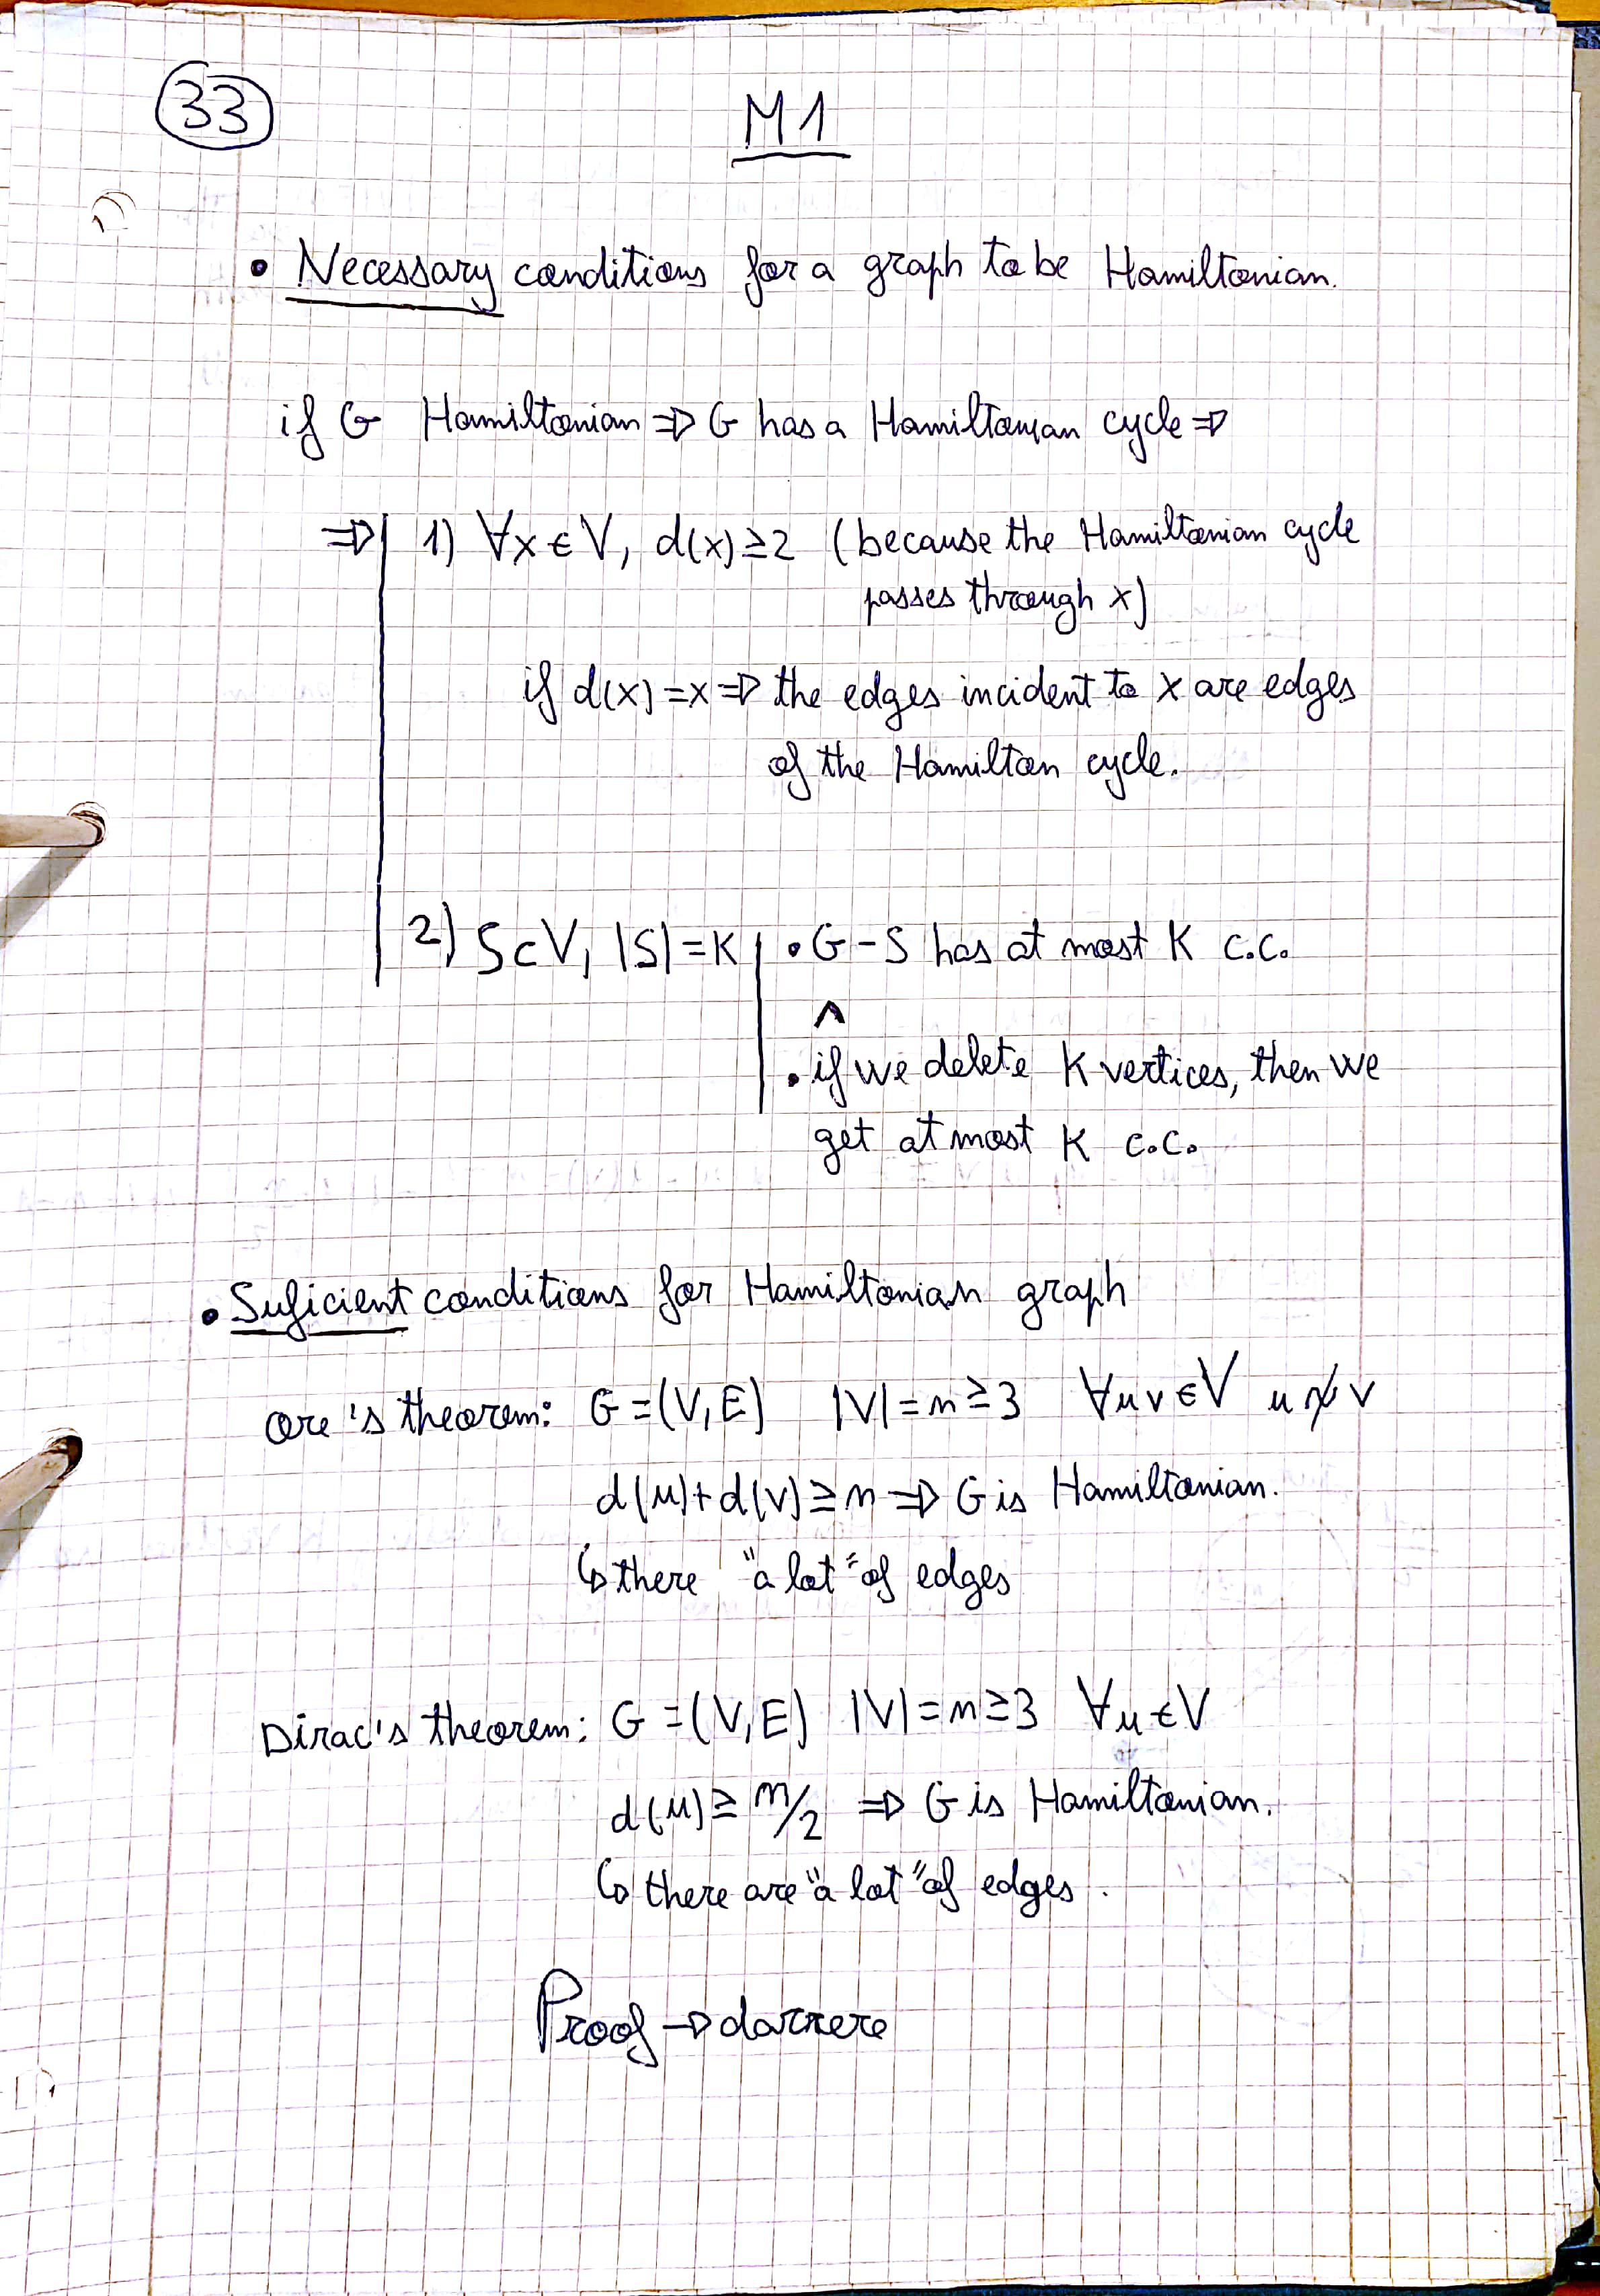 33
M1
• Necessary conditions for a graph to be Hamiltonian.
if G Hamiltonian ⇒ G has a Hamiltonian cycle ⇒
⇒ | 1) ∀x ∈ V, d(x) ≥ 2 (because the Hamiltonian cycle
passes through x)
if d(x) = x ⇒ the edges incident to x are edges
of the Hamilton cycle.
2) S ⊂ V, |S| = K | • G - S has at most K c.c.
∧
• if we delete K vertices, then we
get at most K c.c.
• Suficient conditions for Hamiltonian graph
Ore's theorem: G = (V, E) |V| = n ≥ 3 ∀u v ∈ V u ≁ v
d(u) + d(v) ≥ n ⇒ G is Hamiltonian.
↳ there "a lot" of edges
Dirac's theorem: G = (V, E) |V| = n ≥ 3 ∀u ∈ V
d(u) ≥ n/2 ⇒ G is Hamiltonian.
↳ there are "a lot" of edges.
Proof → darrere